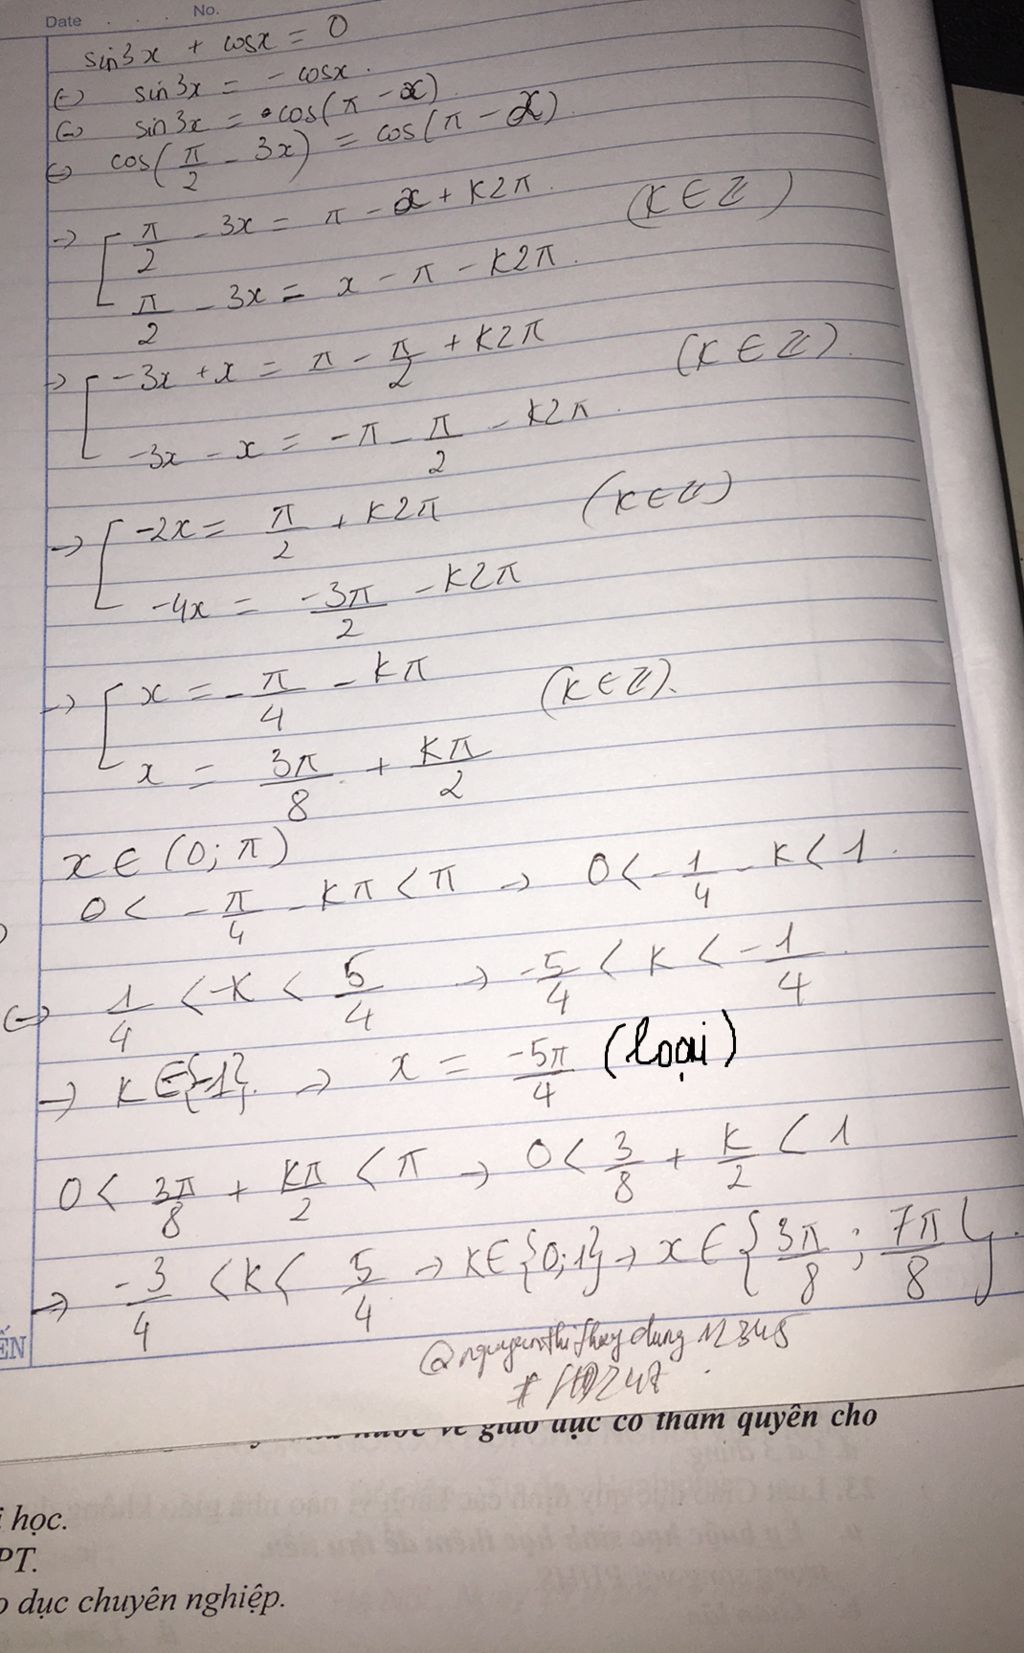 Date . . . No.
sin3x + cosx = 0
(-) sin3x = - cosx.
(-) sin3x = cos(π - x)
<=> cos(π/2 - 3x) = cos(π - x).
-> [ π/2 - 3x = π - x + k2π. (k ∈ Z)
π/2 - 3x = x - π - k2π.
-> [ -3x + x = π - π/2 + k2π (k ∈ Z).
-3x - x = -π - π/2 - k2π.
-> [ -2x = π/2 + k2π (k ∈ Z)
-4x = -3π/2 - k2π
-> [ x = -π/4 - kπ (k ∈ Z).
x = 3π/8 + kπ/2
x ∈ (0; π)
0 < -π/4 - kπ < π -> 0 < -1/4 - k < 1.
(=) 1/4 < -k < 5/4 -> -5/4 < k < -1/4.
-> k ∈ {-1}. -> x = -5π/4 (loại)
0 < 3π/8 + kπ/2 < π -> 0 < 3/8 + k/2 < 1
-> -3/4 < k < 5/4 -> k ∈ {0;1} -> x ∈ {3π/8 ; 7π/8}.
ẾN
@nguyenthithuydung12345
giáo dục có thẩm quyền cho
học.
PT.
dục chuyên nghiệp.